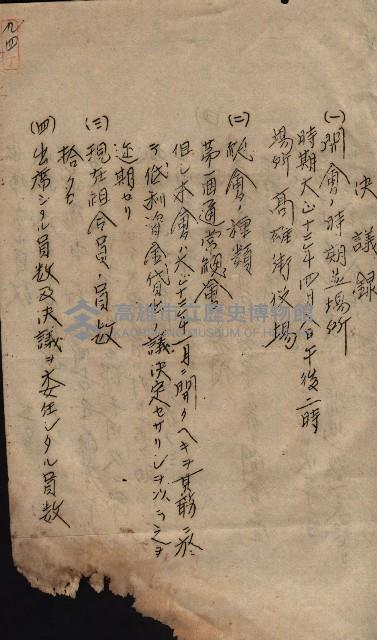 決議録
(一) 開會ノ時期並場所
時期 大正十三年四月 日午後二時
場所 高雄街役場
(二) 総會ノ種類
第一回通常總會
但シ本會ハ大正十 年一月ニ開クヘキヲ其筋ニ於
テ低利資金貸 議決定セサリシヲ以テ之ヲ
延期セリ
(三) 現在組合員ノ員数
拾九名
(四) 出席シタル員数及決議ヲ委任シタル員数
九四
高雄市立歷史博物館
KAOHSIUNG MUSEUM OF HISTORY